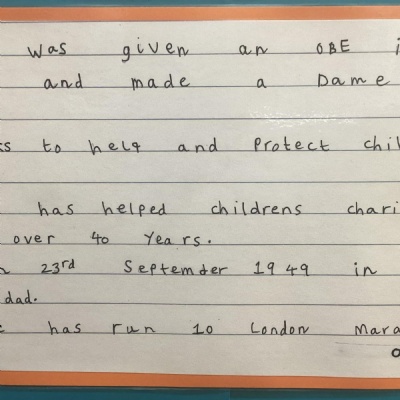 was given an OBE i
and made a Dame
ks to help and Protect chil
has helped childrens chari
over 40 years.
n 23rd September 1949 in
dad.
e has run 10 London Mara